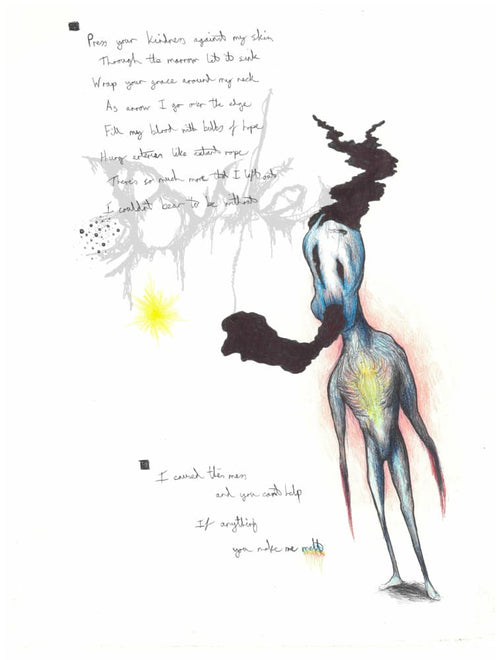 Press your kindness against my skin
Through the marrow lets it sink
Wrap your grace around my neck
As arrow I go over the edge
Fill my blood with bolts of hope
Hung arteries like rope
There's so much more that I left
I couldn't bear to be without
I caused this mess
and you can't help
If anything
you make me melt